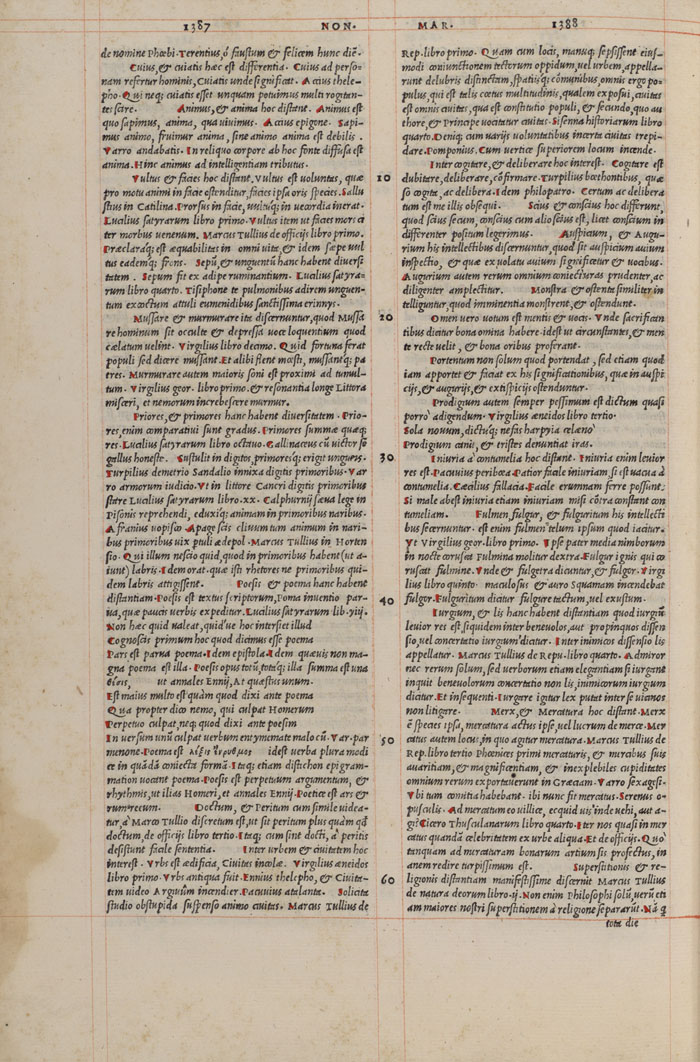 1387 NON. MAR. 1388
de nomine Phœbi. Terentius, ô faustum & felicem hunc diẽ.
Cuius, & cuiatis hæc est differentia. Cuius ad perso-
nam refertur hominis, Cuiatis unde significat. Accius thele-
pho. Qui neq; cuiatis esset unquam potuimus multi rogitan-
tes scire. Animus, & anima hoc distant. Animus est
quo sapimus, anima, qua uiuimus. Accius epigone. Sapi-
mus animo, fruimur anima, sine animo anima est debilis.
Varro andabatis. In reliquo corpore ab hoc fonte diffusa est
anima. Hinc animus ad intelligentiam tributus.
Vultus & facies hoc distant. Vultus est uoluntas, quæ
pro motu animi in facie ostenditur, facies ipsa oris species. Sallu
stius in Catilina. Prorsus in facie, uultuq; in uecordia inerat.
Lucilius satyrarum libro primo. Vultus item ut facies mors ci
ter morbus uenenum. Marcus Tullius de officijs libro primo.
Præclaraq; est æquabilitas in omni uita, & idem sæpe uul
tus eademq; frons. Sepũ, & unguentũ hanc habent diuersi
tatem. Sepum fit ex adipe ruminantium. Lucilius satyra-
rum libro quarto. Tisiphone te pulmonibus adirem unguen-
tum excoctum attuli eumenidibus sanctissima erinnys.
Mussare & murmurare ita discernuntur, quod Mussa
re hominum sit occulte & depressa uoce loquentium quod
cælatum uelint. Virgilius libro decimo. Quid fortuna ferat
populi sed dicere mussant. Et alibi flent mœsti, mussantq; pa
tres. Murmurare autem maioris soni est proximi ad tumul-
tum. Virgilius geor. libro primo. & resonantia longe Littora
misceri, et nemorum increbescere murmur.
Priores, & primores hanc habent diuersitatem. Prio-
res, enim comparatiui sunt gradus. Primores summæ quæq;
res. Lucilius satyrarum libro octauo. Gallinaceus cũ uictor se
gallus honeste. Sustulit in digitos, primoresq; erigit ungues.
Turpilius demetrio Sandalio innixa digitis primoribus. Var
ro armorum iudicio. Vt in littore Cancri digitis primoribus
stare Lucilius satyrarum libro. xx. Calphurnij sæua lege in
Pisonis reprehendi, eduxiq; animam in primoribus naribus.
Afranius uopisco Apage scis cliuum tum animum in nari-
bus primoribus uix puli ædepol. Marcus Tullius in Horten
sio. Qui illum nescio quid, quod in primoribus habent (ut a-
iunt) labris. Idem orat. quæ isti rhetores ne primoribus qui-
dem labris attigissent. Poesis & poema hanc habent
distantiam. Poesis est textus scriptorum, Poma inuentio par-
ua, quæ paucis uerbis expeditur. Lucilius satyrarum lib. viij.
Non hæc quid ualeat, quid'ue hoc intersiet illud
Cognoscis primum hoc quod dicimus esse poema
Pars est parua poema. Idem epistola. Idem quæuis non ma-
gna poema est illa. Poesis opus totũ, totaq; illa summa est una
ut annales Ennij, At quæstus unum.
Est maius multo est quàm quod dixi ante poema
Qua propter dico nemo, qui culpat Homerum
Perpetuo culpat, neq; quod dixi ante poesim
In uersum unũ culpat uerbum enymemate malo cũ. Var. par
menone. Poema est λέξις ἔρυθμος idest uerba plura modi
ce in quãdã coniecta formã. Itaq; etiam distichon epigram-
mation uocant poema. Poesis est perpetuum argumentum, &
rhythmis, ut ilias Homeri, et annales Ennij. Poetice est ars &
rum rerum. Doctum, & Peritum cum simile uidea-
tur, à Marco Tullio discretum est, ut sit peritum plus quàm qd
doctum, de officijs libro tertio. Itaq; cum sint docti, à peritis
desistunt facile sententia. Inter urbem & ciuitatem hoc
interest. Vrbs est ædificia, Ciuitas incolæ. Virgilius æneidos
libro primo. Vrbs antiqua fuit. Ennius thelepho, & Ciuita-
tem uideo Argiuũm incendier. Pacuuius atalanta. Solicita
studio obstupida suspenso animo ciuitas. Marcus Tullius de
Rep. libro primo. Quam cum locis, manuq; sepsissent eius-
modi coniunctionem tectorum oppidum, uel urbem, appella-
runt delubris distinctam, spatiisq; cõmunibus, omnis ergo po-
pulus, qui est talis cœtus multitudinis, qualem exposui, ciuitas
est omnis ciuitas, quæ est constitutio populi, & secundo, quo au
thore, & Principe uocatur ciuitas. Sisenna historiarum libro
quarto. Deniq; cum uarijs uoluntatibus incerta ciuitas trepi-
dare. Pomponius. Cum uertice superiorem locum incende.
Inter cogitare, & deliberare hoc interest. Cogitare est
10 dubitare, deliberare, cõfirmare. Turpilius bœthontibus, quæ
so cogita, ac delibera. Idem philopatro. Certum ac delibera
tum est me illis obsequi. Scius & conscius hoc differunt,
quod scius secum, conscius cum alio scius est, licet conscium in
differenter positum legerimus. Auspicium, & Augu-
rium his intellectibus discernuntur, quod sit auspicium auium
inspectio, & quæ ex uolatu auium significatur & uocibus.
Augurium autem rerum omnium coniecturas prudenter, ac
diligenter amplectitur. Monstra & ostenta similiter in
telliguntur, quod imminentia monstrent, & ostendunt.
20 Omen uero uotum est mentis & uocis. Vnde sacrifican
tibus dicitur bona omina habere. idest ut circunstantes, & men
te recte uelit, & bona oribus proferant.
Portentum non solum quod portendat, sed etiam quod
iam apportet & faciat ex his significationibus, quæ in auspi
cijs, & augurijs, & extispicijs ostenduntur.
Prodigium autem semper pessimum est dictum quasi
porro adigendum. Virgilius æneidos libro tertio.
Sola nouum, dictuq; nefas harpyia celæno
Prodigium canit, & tristes denuntiat iras.
30 Iniuria à contumelia hoc distant. Iniuria enim leuior
res est. Pacuuius peribœa. Patior facile iniuriam, si est uacua à
contumelia. Cæcilius fallacia. Facile ærumnam ferre possunt,
Si male abest iniuria etiam iniuriam nisi cõtra constant con
tumeliam. Fulmen, fulgur, & fulguritum his intellecti
bus secernuntur. est enim fulmen telum ipsum quod iacitur.
Vt Virgilius geor. libro primo. Ipse pater media nimborum
in nocte corusca Fulmina molitur dextra. Fulgur ignis qui co
ruscat fulmine. Vnde & fulgetra dicuntur, & fulgor. Virgi
lius libro quinto maculosus & auro Squamam incendebat
40 fulgor. Fulguritum dicitur fulgure tactum, uel exustum.
Iurgium, & lis hanc habent distantiam quod iurgiũ
leuior res est siquidem inter beneuolos, aut propinquos dissen
sio, uel concertatio iurgium dicatur. Inter inimicos dissensio lis
appellatur. Marcus Tullius de Repu. libro quarto. Admiror
nec rerum solum, sed uerborum etiam elegantiam si iurgant
inquit beneuolorum concertatio non lis, inimicorum iurgium
dicitur. Et insequenti. Iurgare igitur lex putat inter se uicinos
non litigare. Merx, & Mercatura hoc distant. Merx
ẽ species ipsa, mercatura actus ipse, uel lucrum de merce. Mer
50 catus autem locus, in quo agitur mercatura. Marcus Tullius de
Rep. libro tertio Phœnices primi mercaturis, & mercibus suis
auaritiam, & magnificentiam, & inexplebiles cupiditates
omnium rerum exportauerunt in Græciam. Varro sexagesi-
Vbi tum comitia habebant. ibi nunc fit mercatus. Serenus o-
pusculis. Ad mercatum eo uillice, ecquid uis inde uehi, aut a-
gi? Cicero Thusculanarum libro quarto. Iter nos quasi in mer
catus quandã celebritatem ex urbe aliqua. Et de officijs. Quo
tanquam ad mercaturam bonarum artium sis profectus, in
anem redire turpissimum est. Superstitionis & re-
60 ligionis distantiam manifestissime discernit Marcus Tullius
de natura deorum libro. ij. Non enim Philosophi solũ, uerũ eti
am maiores nostri superstitionem à religione separarũt. Nã q
tota die